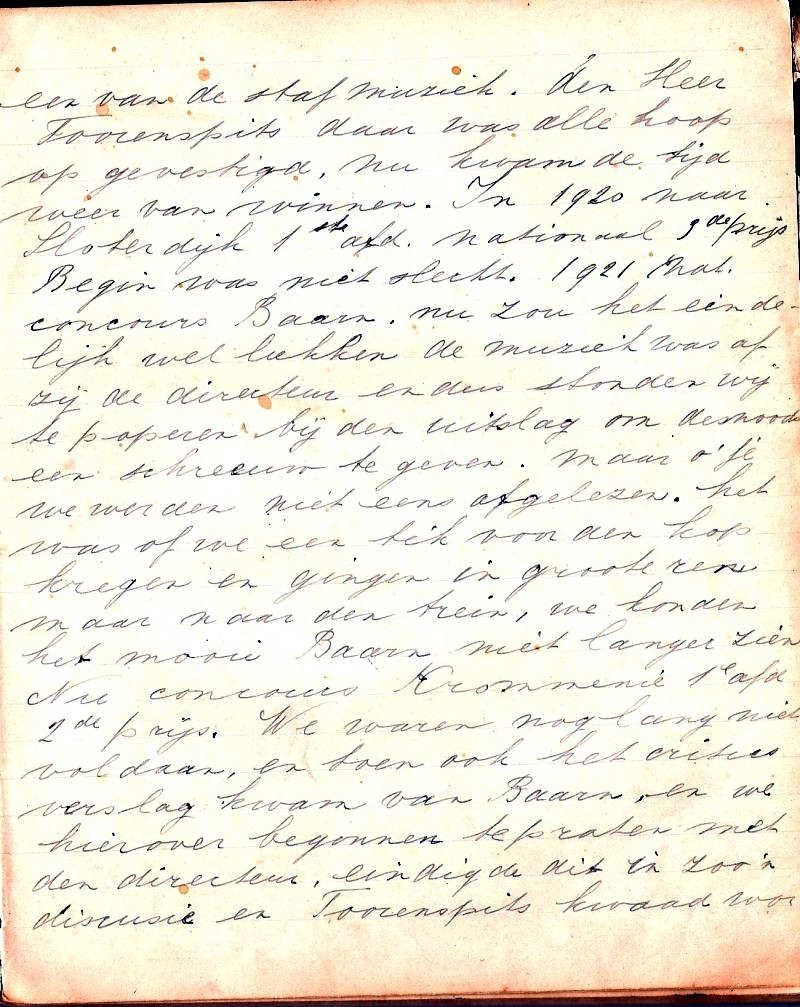 een van de stafmuziek. den Heer
Toorenspits daar was alle hoop
op gevestigd, nu kwam de tijd
weer van winnen. In 1920 naar
Sloterdijk 1ste afd. nationaal 3de prijs
Begin was niet slecht. 1921 Nat.
concours Baarn. nu zou het einde-
lijk wel lukken de muziek was af
zij de directeur en dus stonden wij
te poperen bij den uitslag om desnoods
een schreeuw te geven. maar o jé
we werden niet eens afgelezen. het
was of we een tik voor den kop
kregen en gingen in groote ren
maar naar den trein, we konden
het mooie Baarn niet langer zien
Nu concours Krommenie 1e afd
2de prijs. We waren nog lang niet
voldaan, en toen ook het critics
verslag kwam van Baarn, en we
hierover begonnen te praten met
den directeur, eindigde dit in zoo'n
discusie en Toorenspits kwaad wor